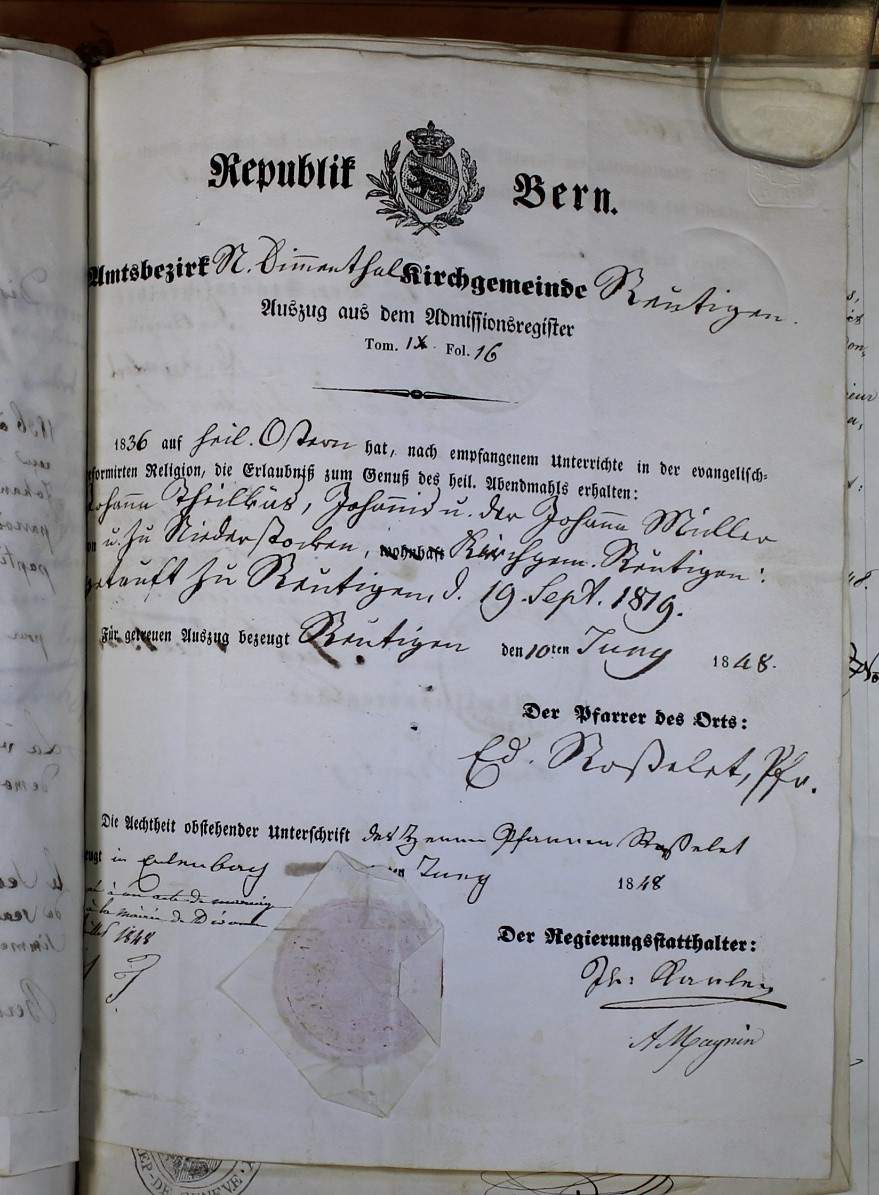 Republik Bern.
Amtsbezirk N. Simmenthal Kirchgemeinde Reutigen.
Auszug aus dem Admissionsregister
Tom. IX. Fol. 16
1836 auf heil. Ostern hat, nach empfangenem Unterrichte in der evangelisch-
reformirten Religion, die Erlaubniß zum Genuß des heil. Abendmahls erhalten:
Johann Theilkäs, Johannis u. der Johanna Müller
von u. zu Niederstocken, wohnhaft Kirchgem. Reutigen:
getauft zu Reutigen, d. 19. Sept. 1819.
Für getreuen Auszug bezeugt Reutigen den 10ten Juny 1848.
Der Pfarrer des Orts:
Ed. Roßelet, Pfr.
Die Aechtheit obstehender Unterschrift des Herrn Pfarrer Roßelet
zeugt in Erlenbach Juny 1848
à un acte de mariage
à la mairie de
1848
Der Regierungsstatthalter:
A Magnin
DEP-DE GENEVE